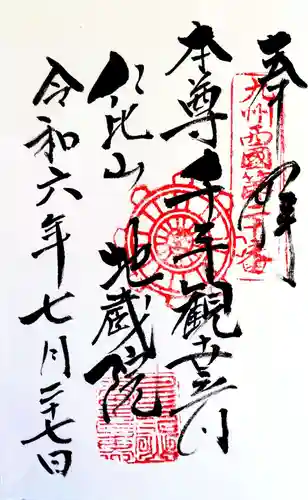 奉拝
九州西國第二十番
本尊千手觀世音
仁比山
地蔵院
令和六年七月二十七日